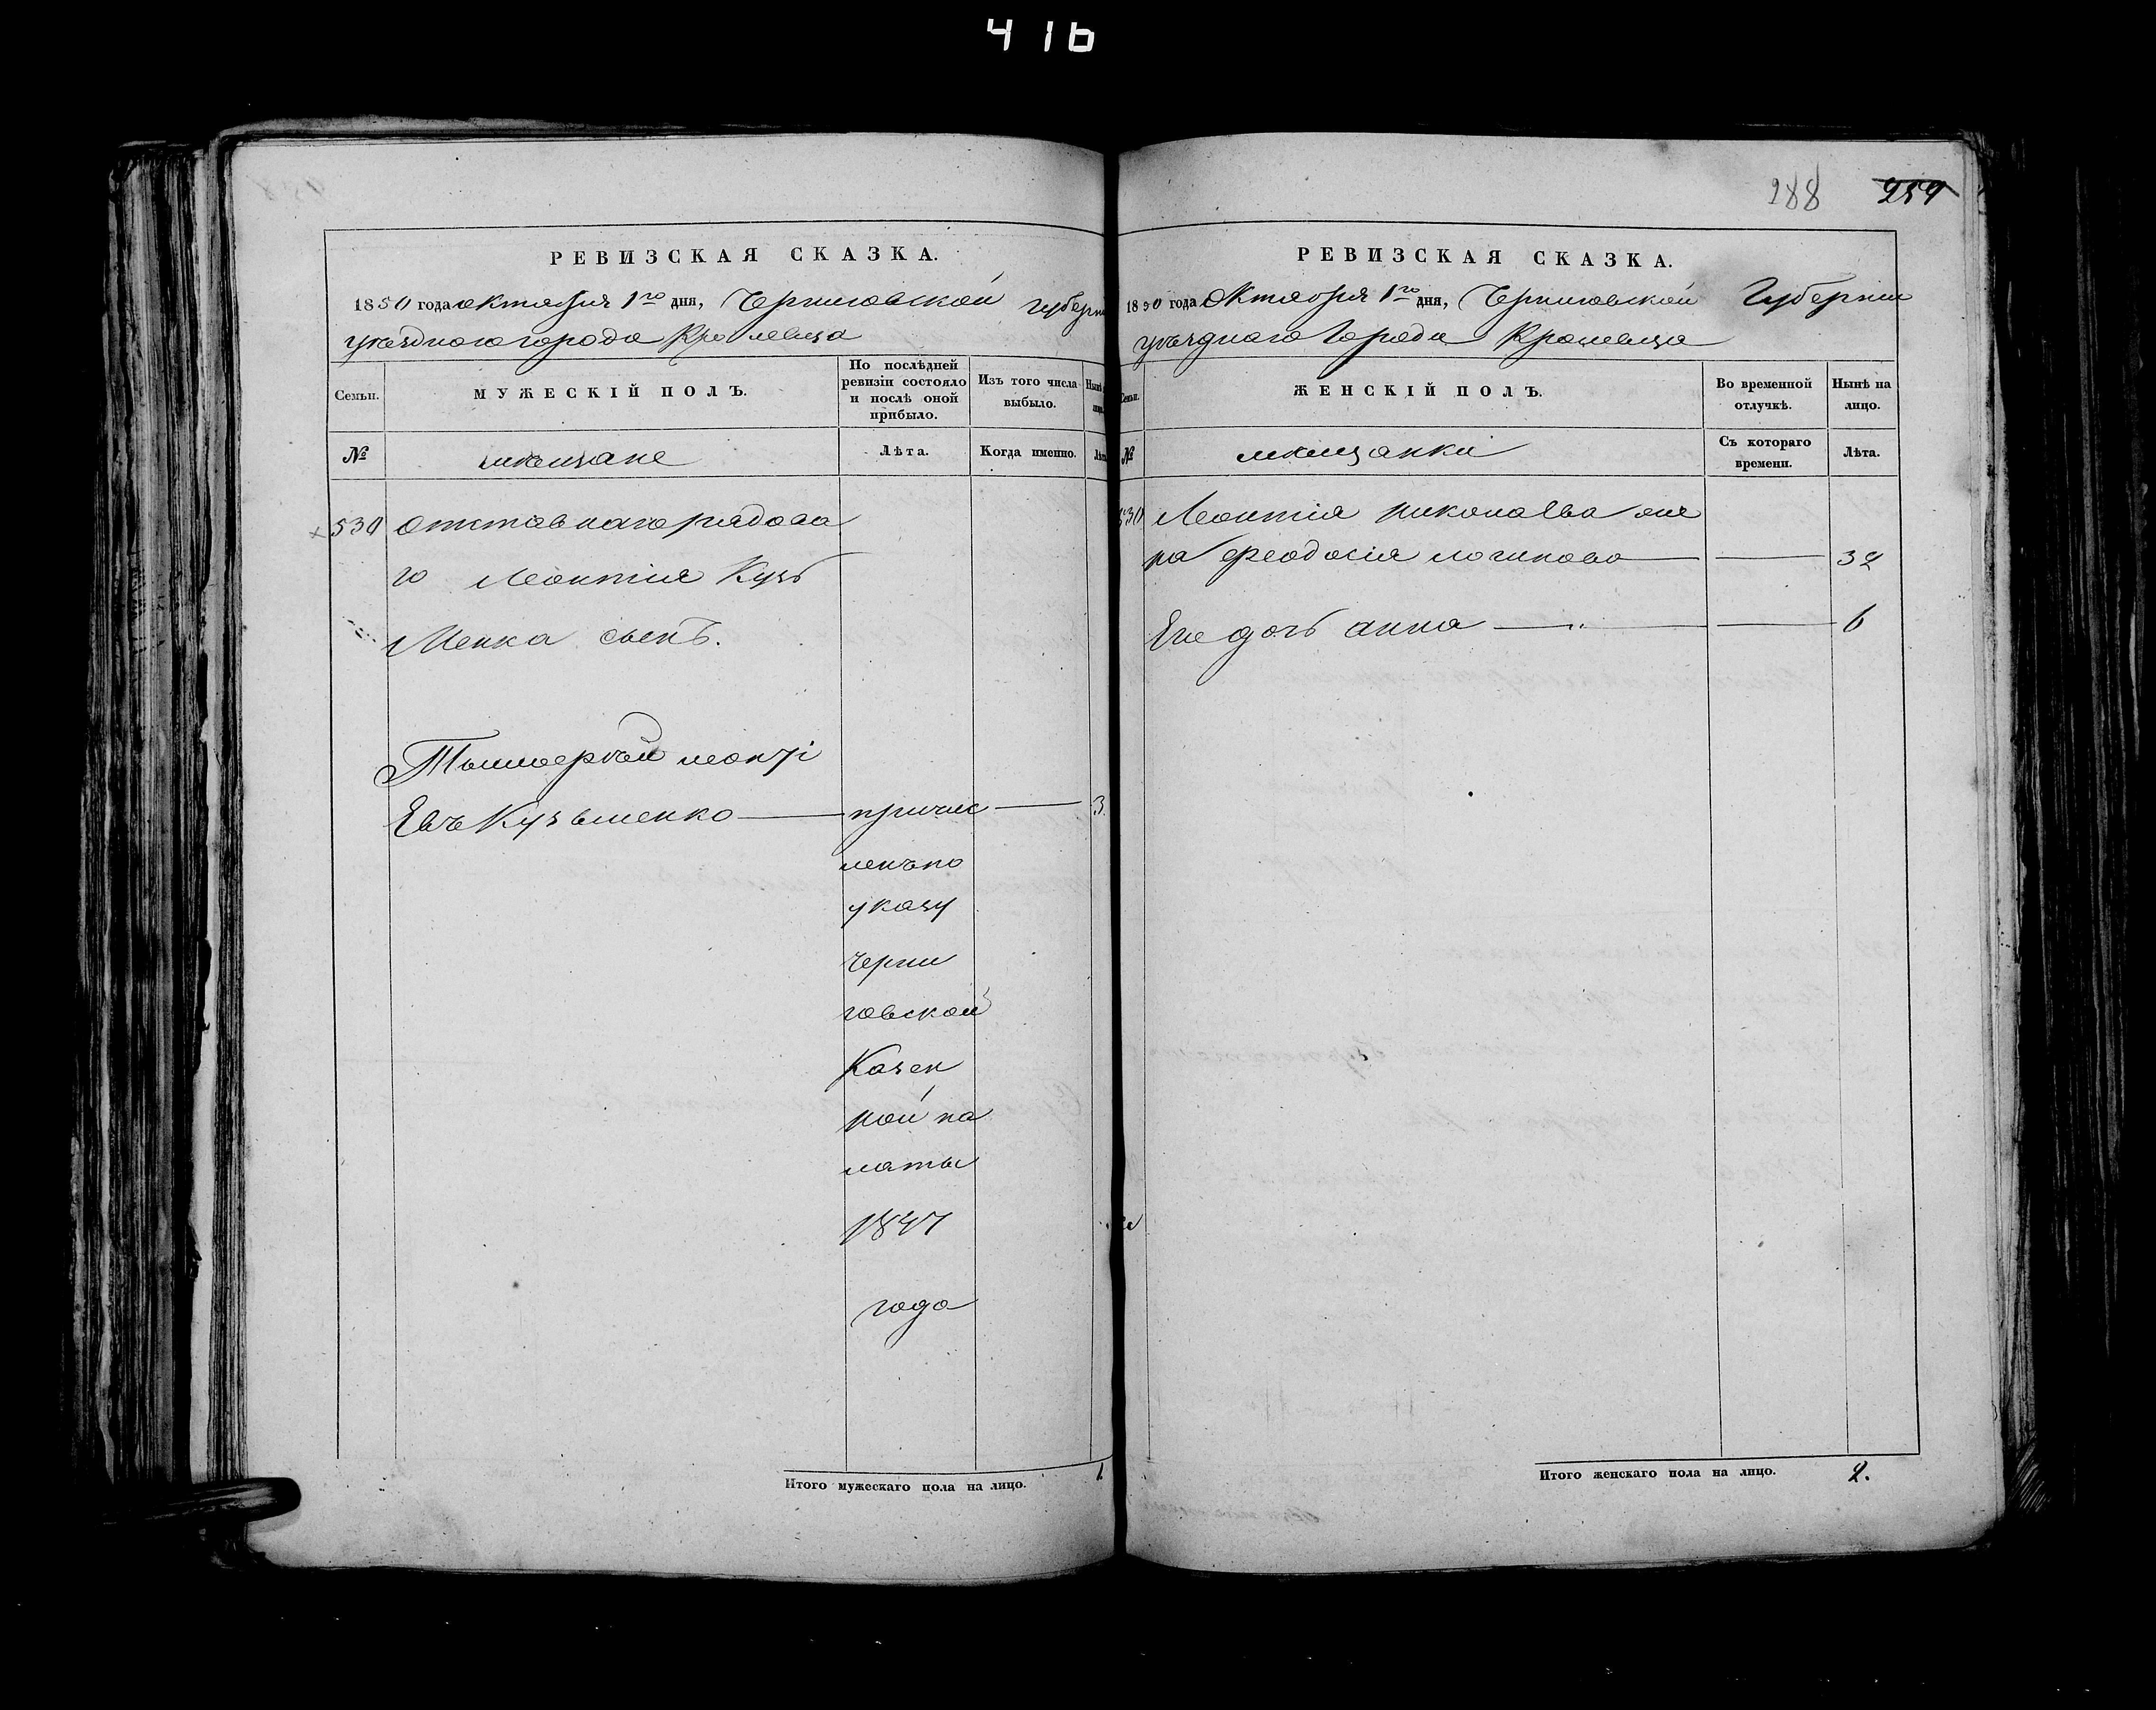 416
РЕВИЗСКАЯ СКАЗКА.
1850 года октября 1го дня, Черниговской губерн
уѣзднаго города Кролевца
Семьи.
МУЖЕСКІЙ ПОЛЪ.
По послѣдней ревизіи состояло и послѣ оной прибыло.
Изъ того числа выбыло.
№
мѣщане
Лѣта.
Когда именно.
530 отставнаго рядова
го Леонтія Кузь
Менка сынъ.
Леонті
Евъ Кузьменко — причис — 3
ленъ по
указу
Черни
говской
Казен
ной па
латы
1847
года
Итого мужескаго пола на лицо. 1.
288 259
РЕВИЗСКАЯ СКАЗКА.
1850 года Октября 1го дня, Черниговской Губерніи
уѣзднаго Города Кролевца
Семьи.
ЖЕНСКІЙ ПОЛЪ.
Во временной отлучкѣ.
Нынѣ на лицо.
№
мѣщанки
Съ котораго времени.
Лѣта.
530 Леонтія Николаева же
на Феодосія логинова — — 32
Ея дочь анна — — 6
Итого женскаго пола на лицо. 2.